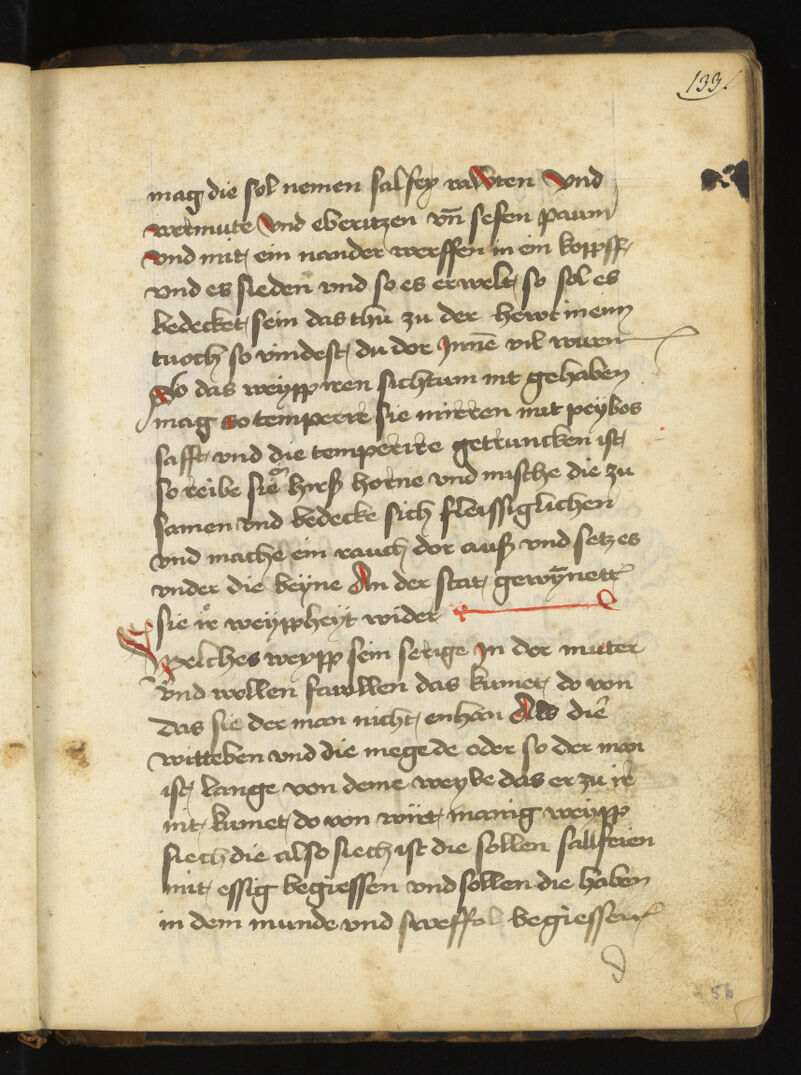 133
mag die sol nemen salfey rawten Vnd
wermute Vnd eberitzen vn̄ sefen paum
Vnd mit ein nander werffen in ein kopff
vnd es sieden vnd so es erwelt so sol es
bedecket sein das thu zu der
tuoch so vindest du dor Jnne vil wurm
So das weypp iren sichtum nit gehaben
mag so temperir sie mirren mit peybos
safft vnd die temperire getruncken ist
so reibe sie hirß horne vnd mische die zu
samen Vnd bedecke sich fleissiglichen
vnd mache ein rauch dor auß vnd setz es
vnder die beyne An der stat gewynnett
sie ir weyppheyt wider
Welches weypp sein serige Jn der mutter
Vnd wollen fawllen das kumet do von
das sie der man nicht enhan Als die
witteben vnd die megede oder so der man
ist lange von deme weybe das er zu ir
nit kumet do von wirt manig weypp
siech die also siech ist die sollen sallfeien
mit essig begiessen vnd sollen die haben
in dem munde vnd sweffel begiessen
56